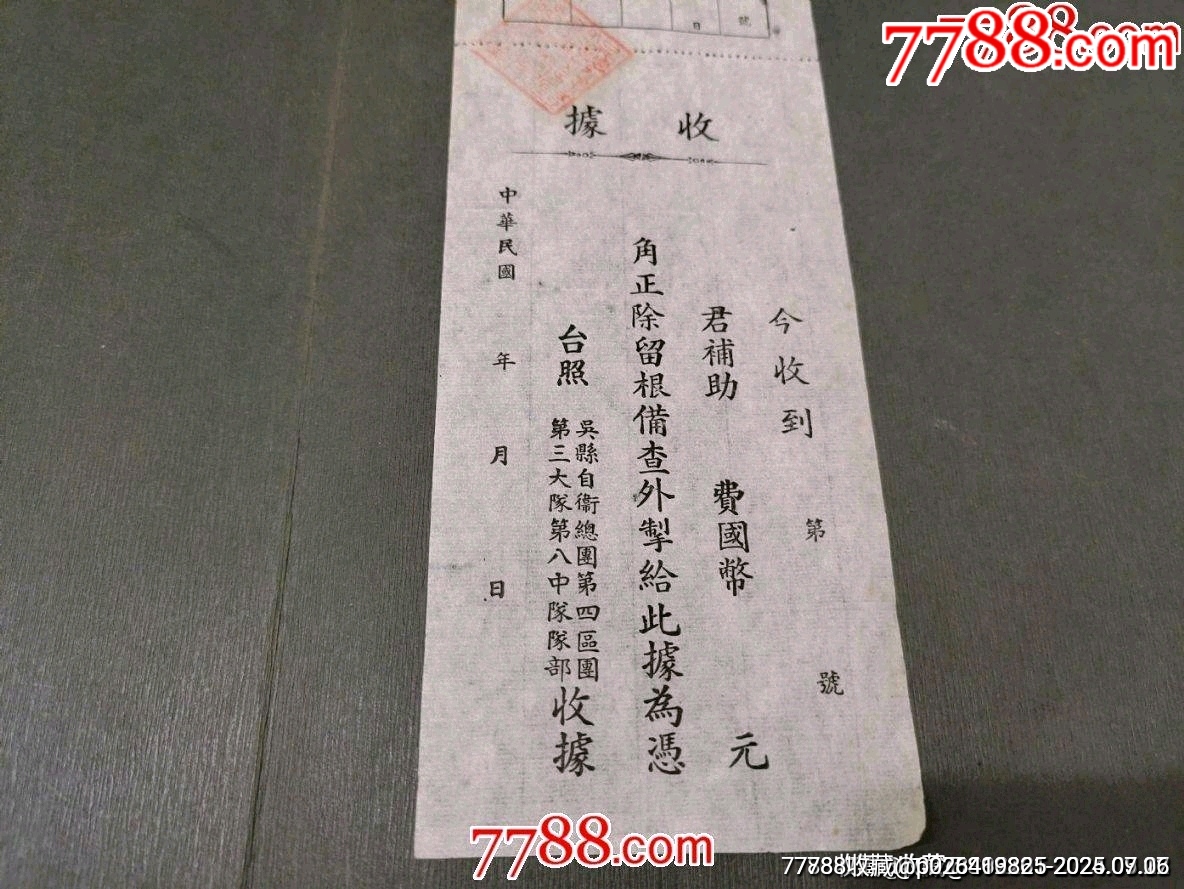 日 號
收據
第 號
今收到
君補助 費國幣 元
角正除留根備查外掣給此據為憑
台照
吳縣自衞總團第四區團
第三大隊第八中隊隊部
收據
中華民國 年 月 日
7788.com
7788.com